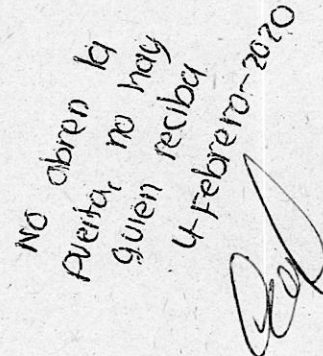 No abren la
puerta, no hay
quien reciba
4-Febrero-2020